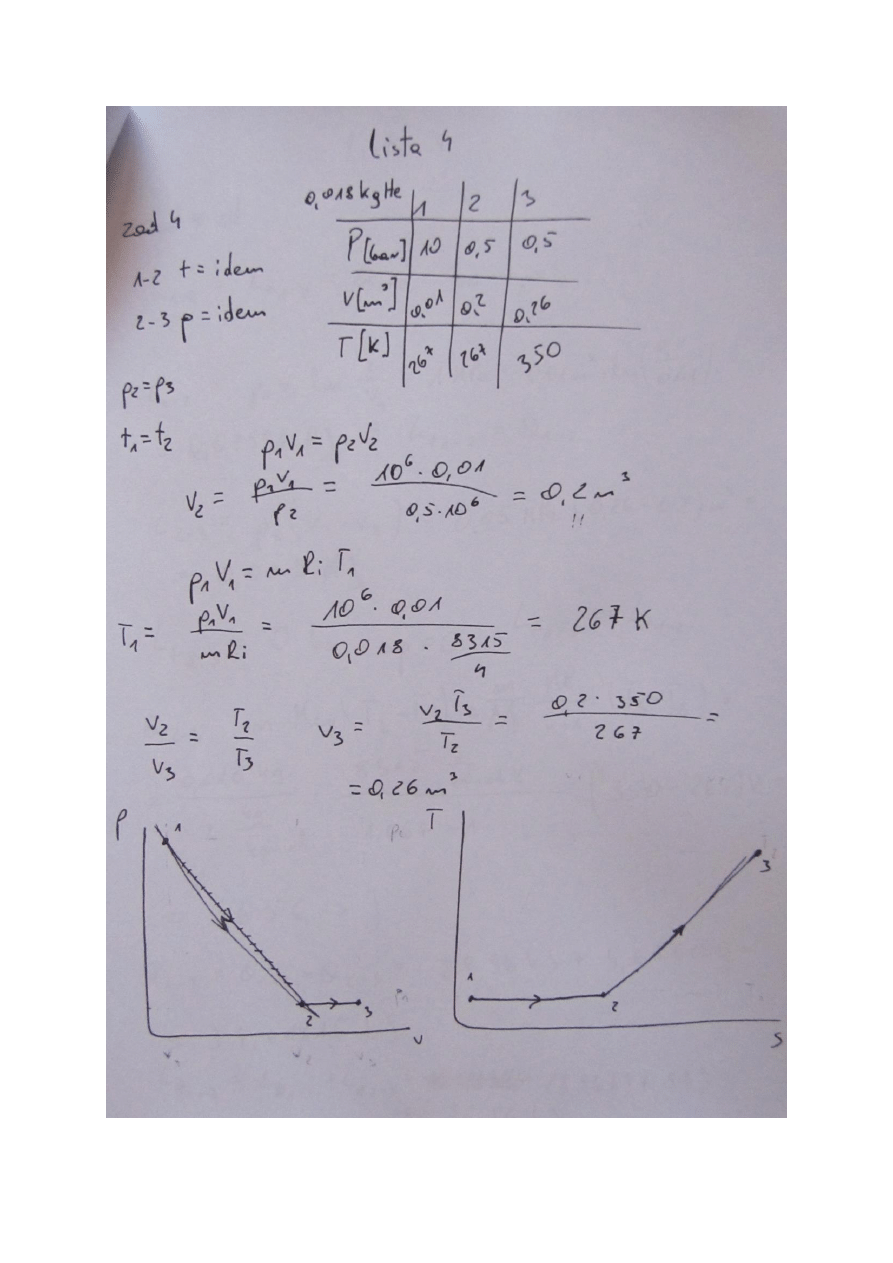 Lista 4
zad 4
0,018 kg He | 1 | 2 | 3
P [bar] | 10 | 0,5 | 0,5
V [m³] | 0,01 | 0,2 | 0,26
T [K] | 267 | 267 | 350
1-2 t = idem
2-3 p = idem
p2 = p3
t1 = t2
p1 V1 = p2 V2
V2 = p1V1 / p2 = 10⁶ · 0,01 / 0,5·10⁶ = 0,2 m³
!!
p1 V1 = m Ri T1
T1 = p1V1 / m Ri = 10⁶ · 0,01 / 0,018 · 8315/4 = 267 K
V2 / V3 = T2 / T3 V3 = V2 T3 / T2 = 0,2 · 350 / 267 =
= 0,26 m³
P 1 2 3 V
T 1 2 3 S